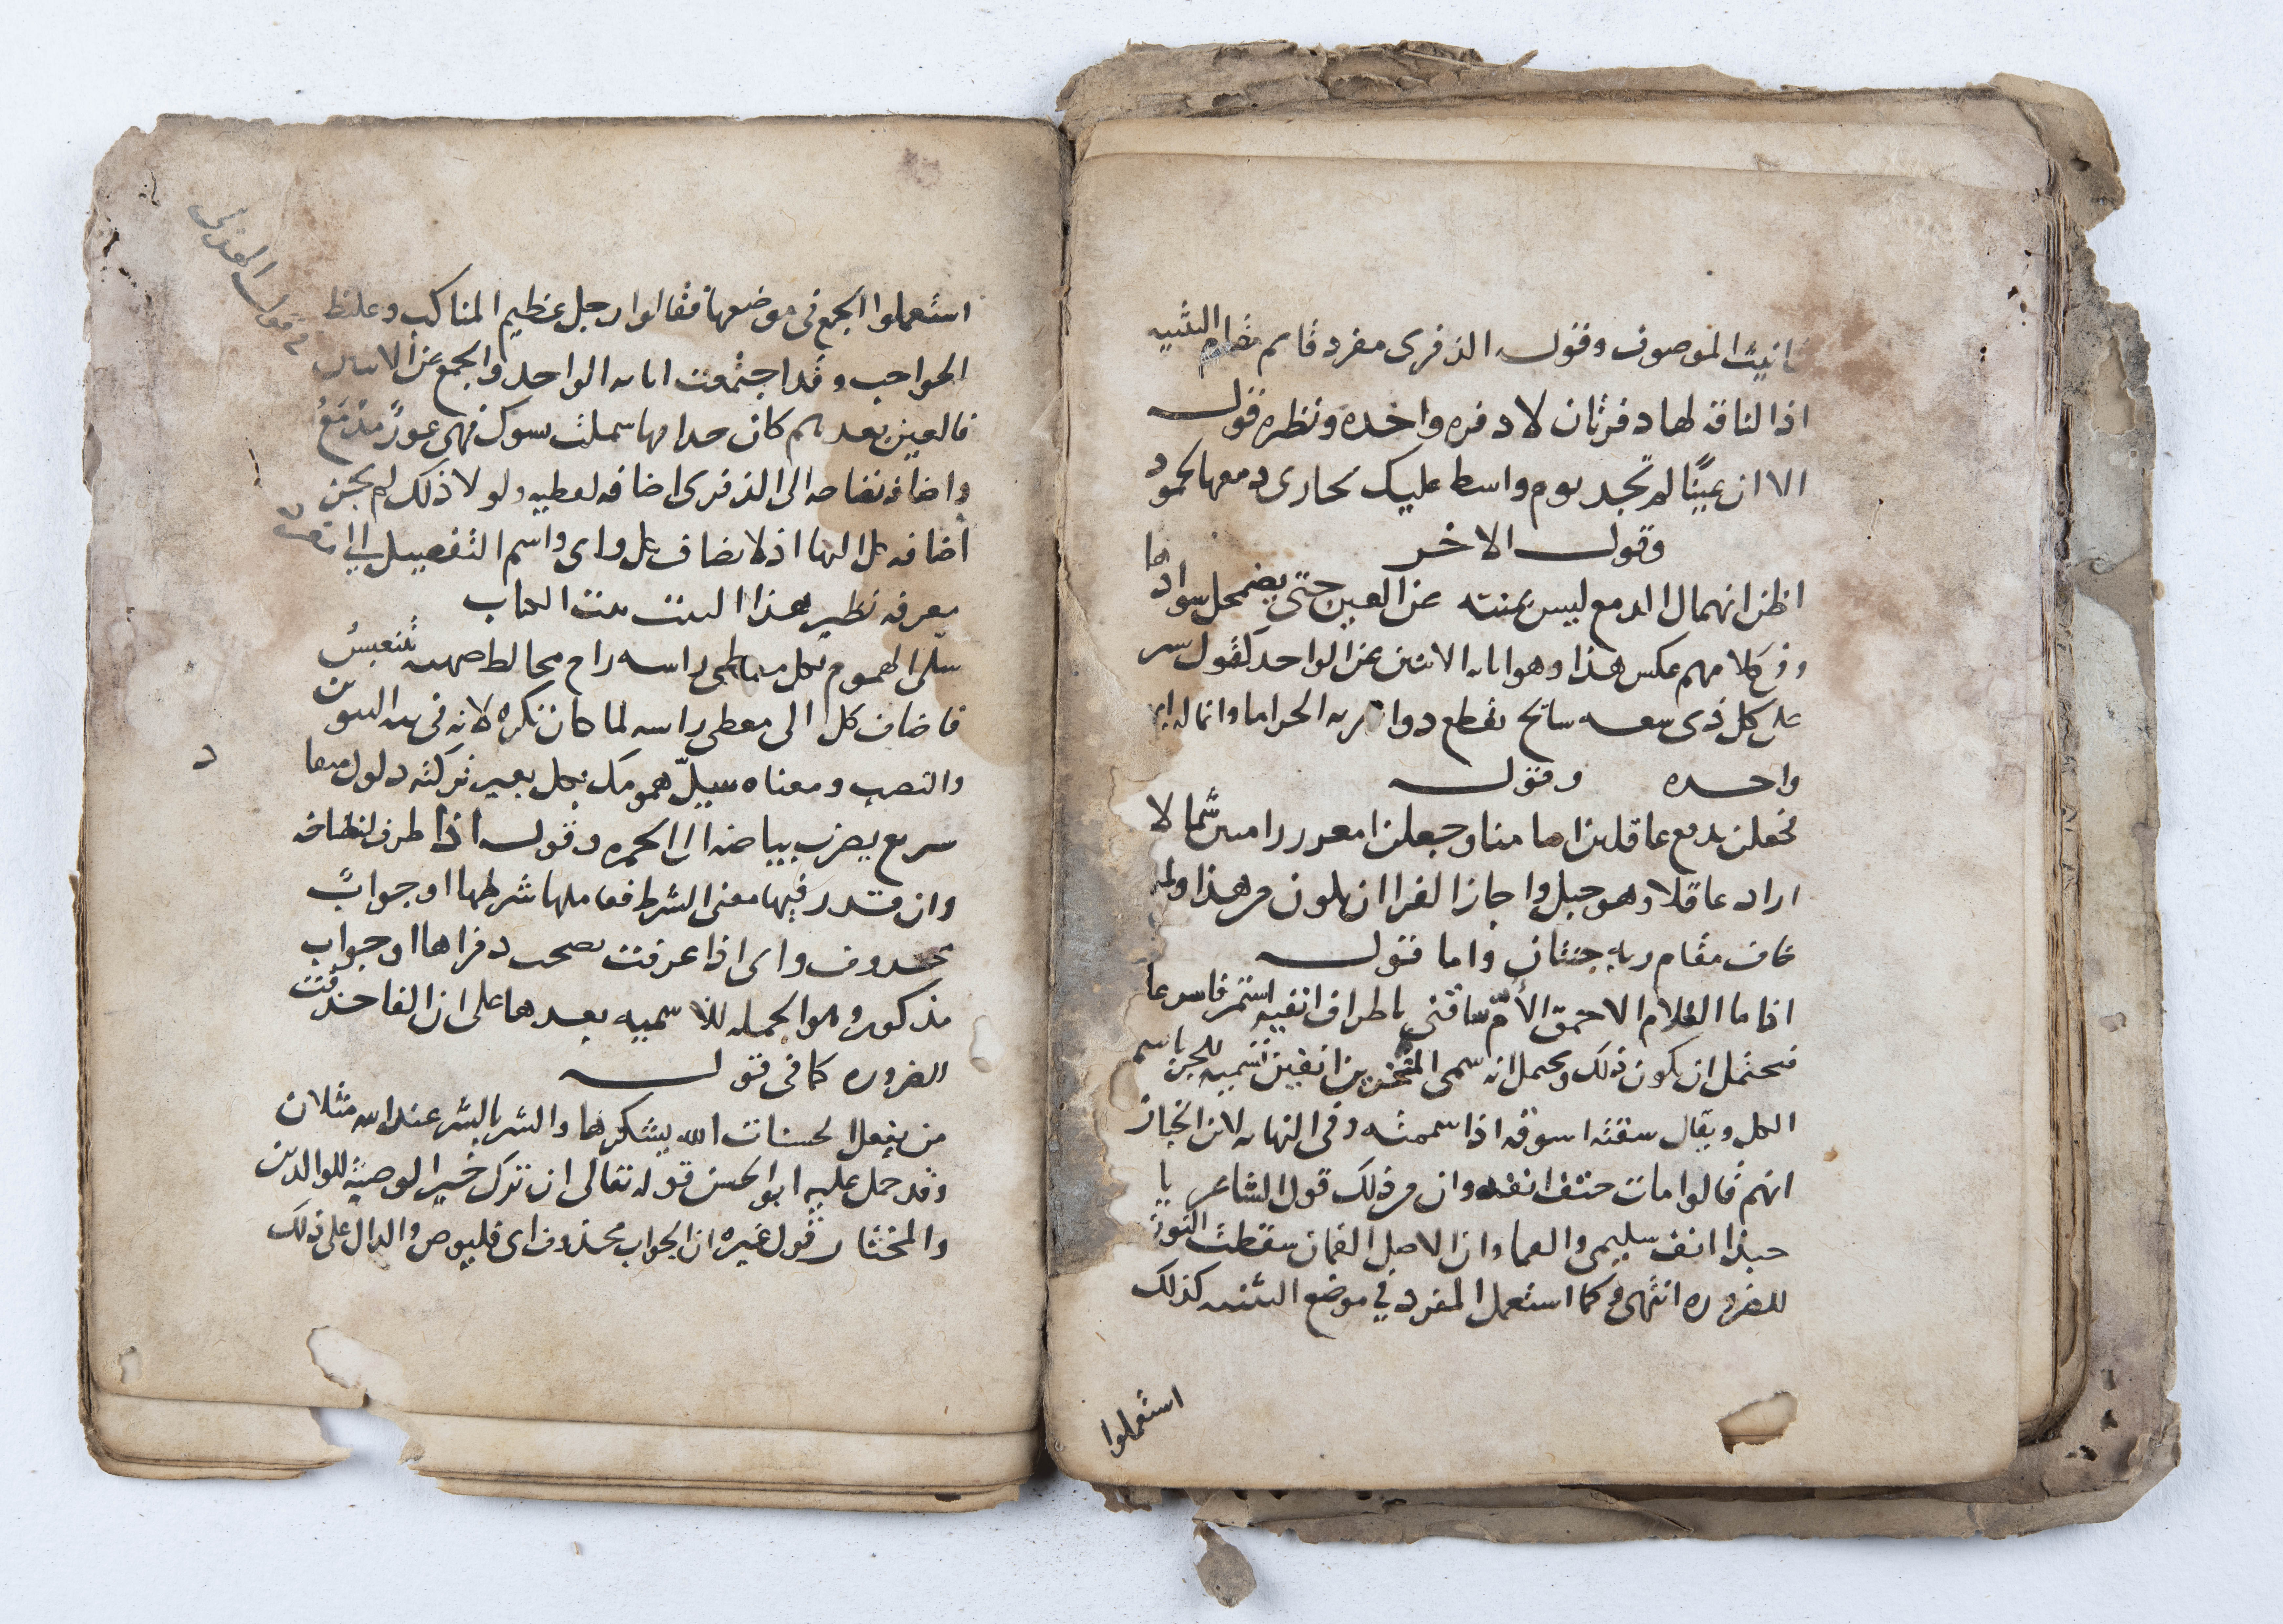 تانيث الموصوف وقوله الذفرى مفرد قايم مقام التثنيه
اذ الناقه لها دفرتان لا دفره واحده ونظره قوله
الا ان عينًا لم تجد يوم واسط عليك بحارى دمعها لجمود
وقول الاخر
اظن انهمال الدمع ليس بمنته عن العين حتى يضمحل سوادها
وفي كلامهم عكس هذا وهو انابه الاثنين عن الواحد كقوله
على كل ذى سابح يقطع ذو ابهريه الحزاما وانما له ابهر
واحده وقوله
فجعلن مدفع عاقلين ايامنا وجعلن امعز رامتين شمالا
اراد عاقلا وهو جبل واجاز الفرا ان يكون من هذا ولمن
خاف مقام ربه جنتان واما قوله
اذا ما الغلام الاحمق الأمّ سافنى باطراف انفيه استمر فاسرعا
فيحتمل ان يكون ذلك ويحتمل انه سمى المنخرين انفين تسميه للجزء باسم
الكل ويقال سفته اسوفه اذا شممته وفى النهايه لابن الخباز
انهم قالوا مات حتف انفه وان من ذلك قول الشاعر يا
حبذا انف سليمى والفما وان الاصل الفمان سقطت النون
للضروره انتهى وكما استعمل المفرد في موضع التثنيه كذلك
استعملوا
استعملوا الجمع فى موضعها فقالوا رجل عظيم المناكب وغليظ
الحواجب وقد اجتمعت انابه الواحد والجمع عن الاثنين
فالعين بعدهم كان حداقها سملت بشوك فهى عورٌ تدمعُ
واضافه الى الذفرى اضافه لفظيه ولولا ذلك لم يجز
اضافه كل اليها اذ لا يضاف كل واى واسم التفضيل الى
معرفه نظير هذا البيت بيت الكتاب
سل الهموم بكل معطى راسه ناج مخالط صهبه متعيسُ
فاضاف كل الى معطى راسه لما كان نكره لانه فى نيه التنوين
والنصب ومعناه سل همومك بكل بعير تركته ذلول
سريع يضرب بياضه الى الحمره وقوله اذا ظرف لنضاخه
وان قدر فيها معنى الشرط فعاملها شرطها او جوابٌ
محدوف واى اذا عرقت نضحت دفراها او جواب
مذكور وهو الجمله للاسميه بعدها على ان الفا حذفت
الضروره كما فى قوله
من يفعل الحسنات الله يشكرها والشر بالشر عند الله مثلان
وقد حمل عليه ابو الحسن قوله تعالى ان ترك خيرا لوصيه للوالدين
والمختار قول غيره ان الجواب محذوف اى فليوص والدال على ذلك